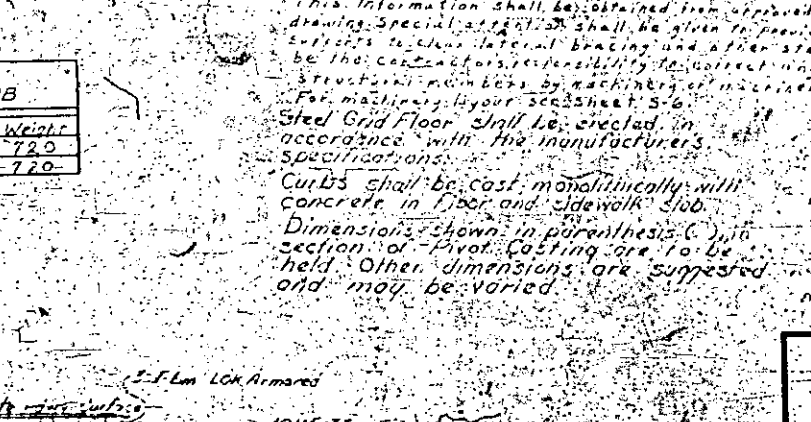 This information shall be obtained from approved
drawing. Special attention shall be given to
supports to clear lateral bracing and other
be the contractors responsibility to correct
structural members by machinery or
For machinery layout see Sheet S-6.
Steel Grid Floor shall be erected in
accordance with the manufacturers
specifications.
Curbs shall be cast monolithically with
concrete in floor and sidewalk slab.
Dimensions shown in parenthesis ( ) in
section of Pivot Casting are to be
held. Other dimensions are suggested
and may be varied
B
Weight
720
720
I-Beam Lok Armored